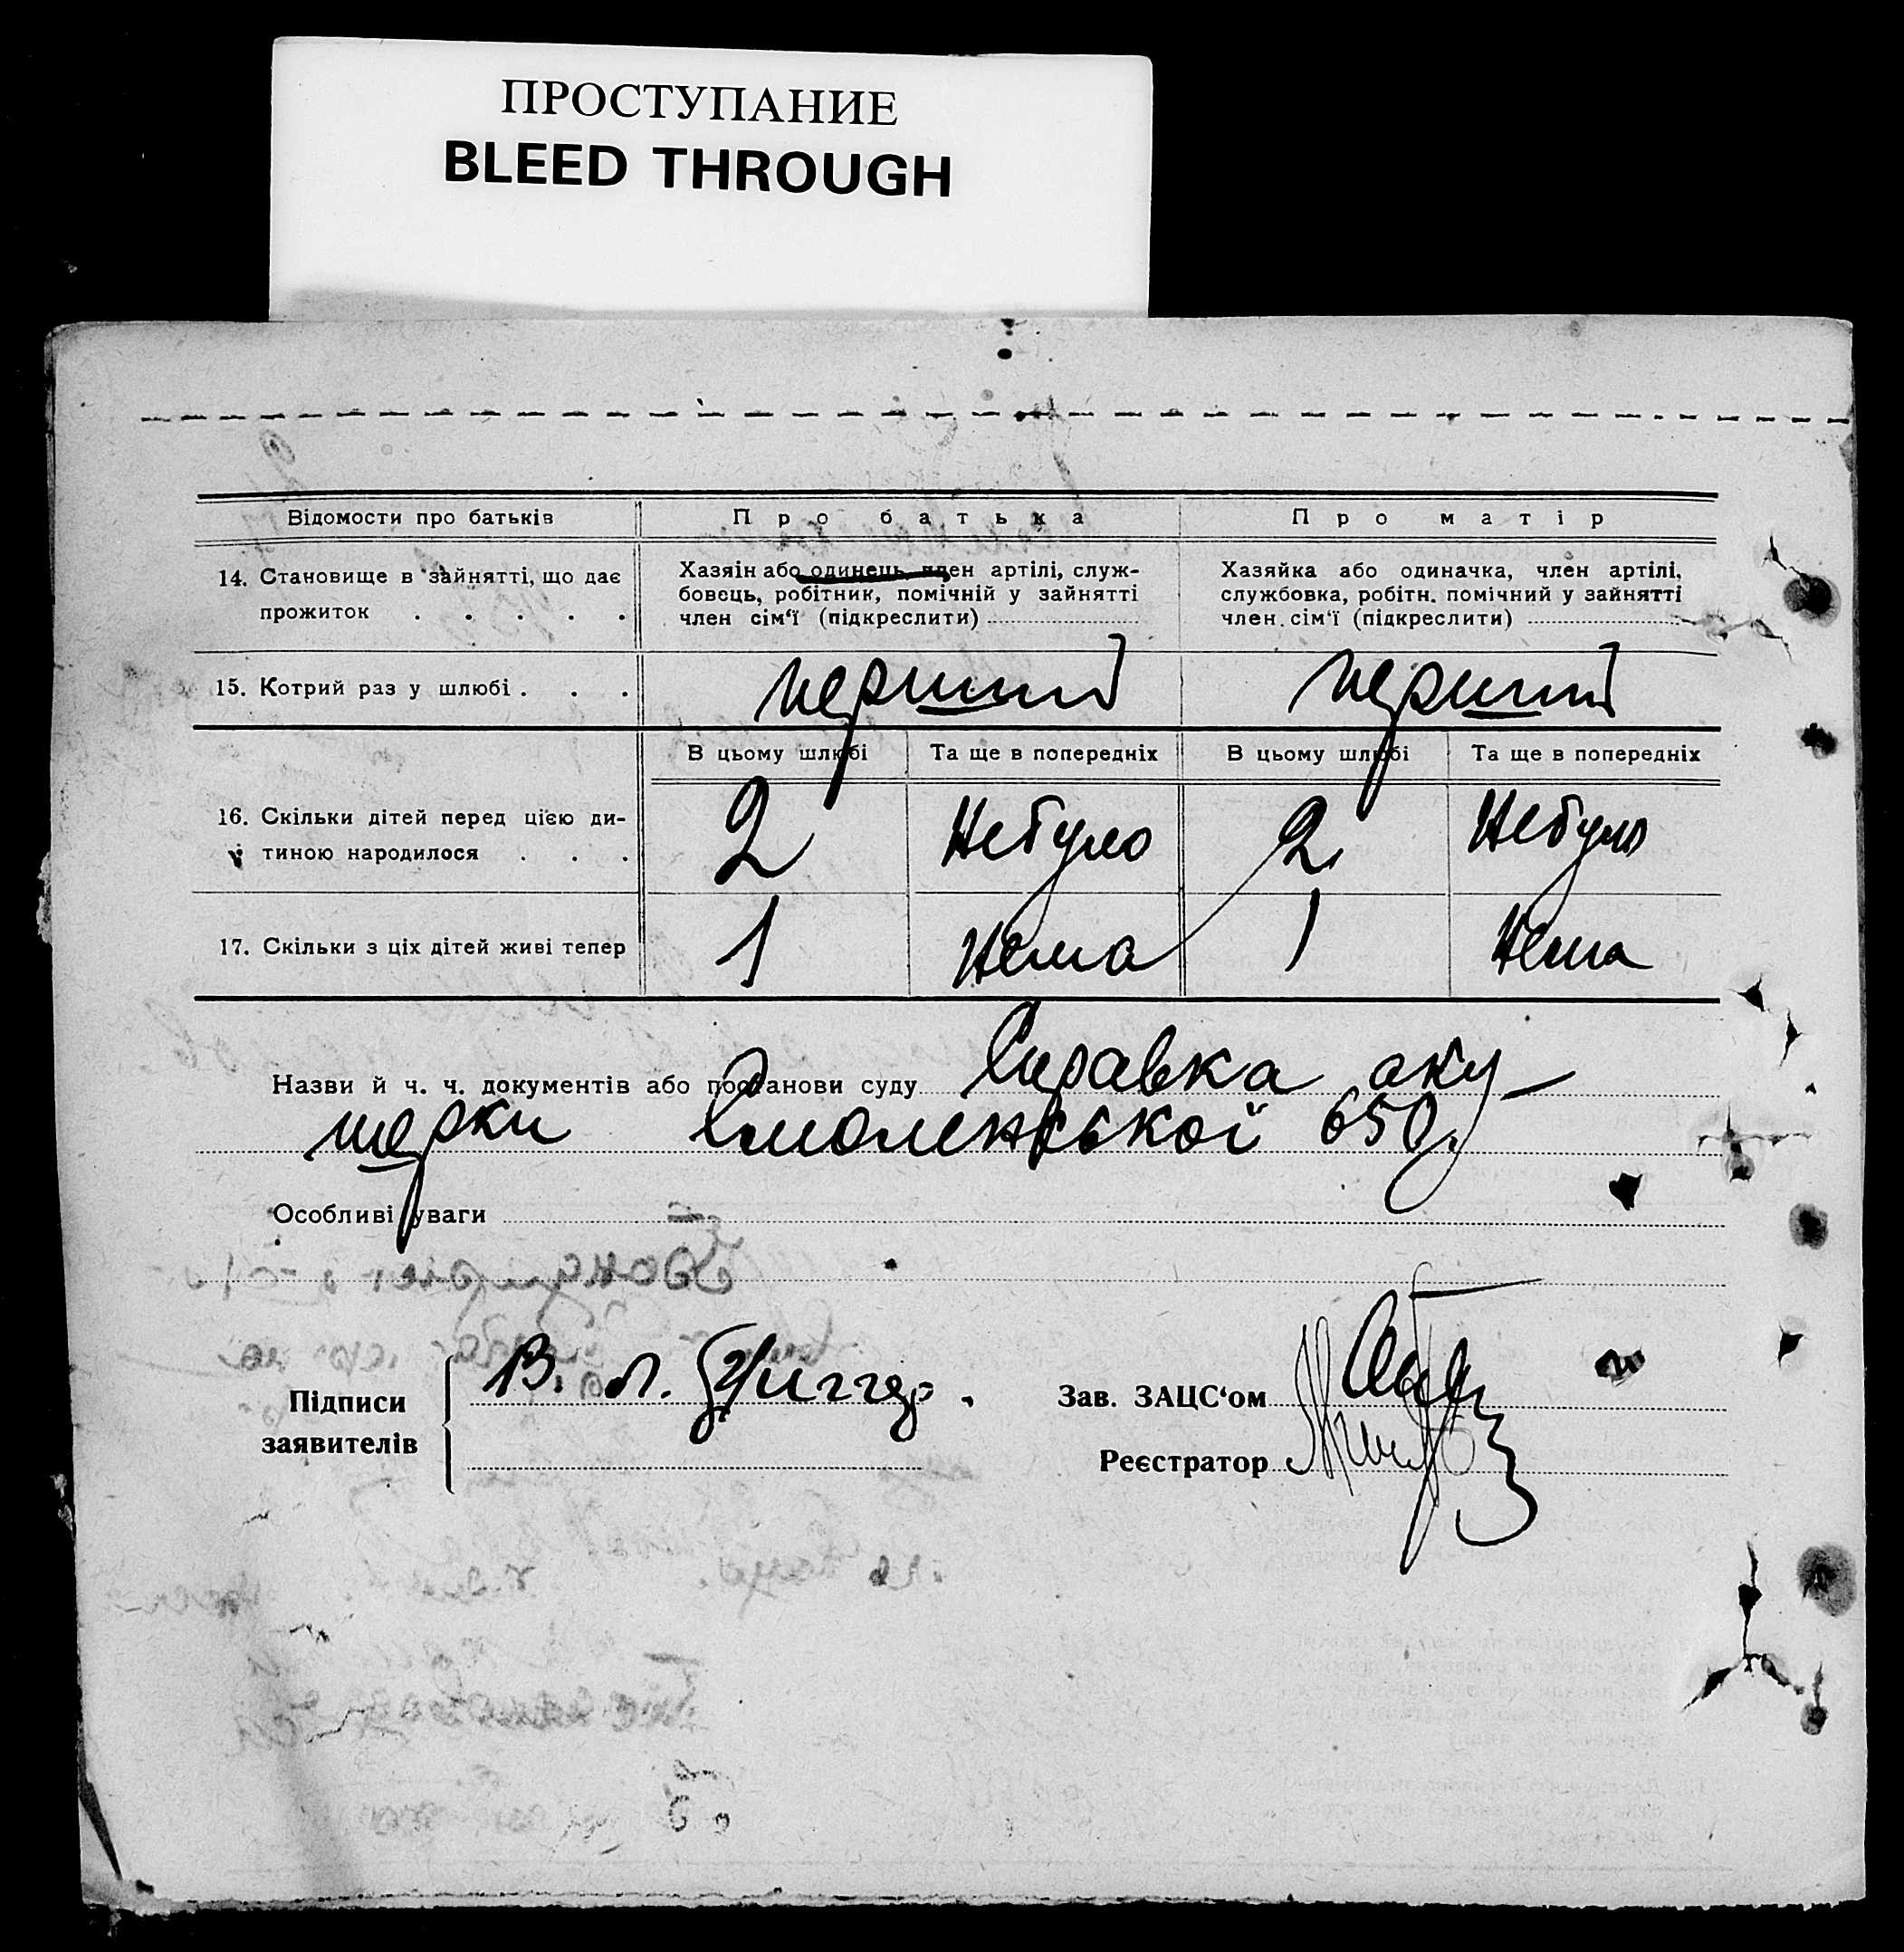 ПРОСТУПАНИЕ
BLEED THROUGH
Відомости про батьків
Про батька
Про матір
14. Становище в зайнятті, що дає
прожиток . . . . .
Хазяїн або одинець, член артілі, служ-
бовець, робітник, помічній у зайнятті
член сім'ї (підкреслити)
Хазяйка або одиначка, член артілі,
службовка, робітн. помічний у зайнятті
член сім'ї (підкреслити)
15. Котрий раз у шлюбі . . .
перший
перший
В цьому шлюбі
Та ще в попередніх
В цьому шлюбі
Та ще в попередніх
16. Скільки дітей перед цією ди-
тиною народилося . . .
2
Небуло
2
Небуло
17. Скільки з ціх дітей живі тепер
1
Нема
1
Нема
Назви й ч. ч. документів або постанови суду Справка аку-
шерки Смоленської 650.
Особливі уваги
Підписи
заявителів
В. Л.
Зав. ЗАЦС'ом
Реєстратор